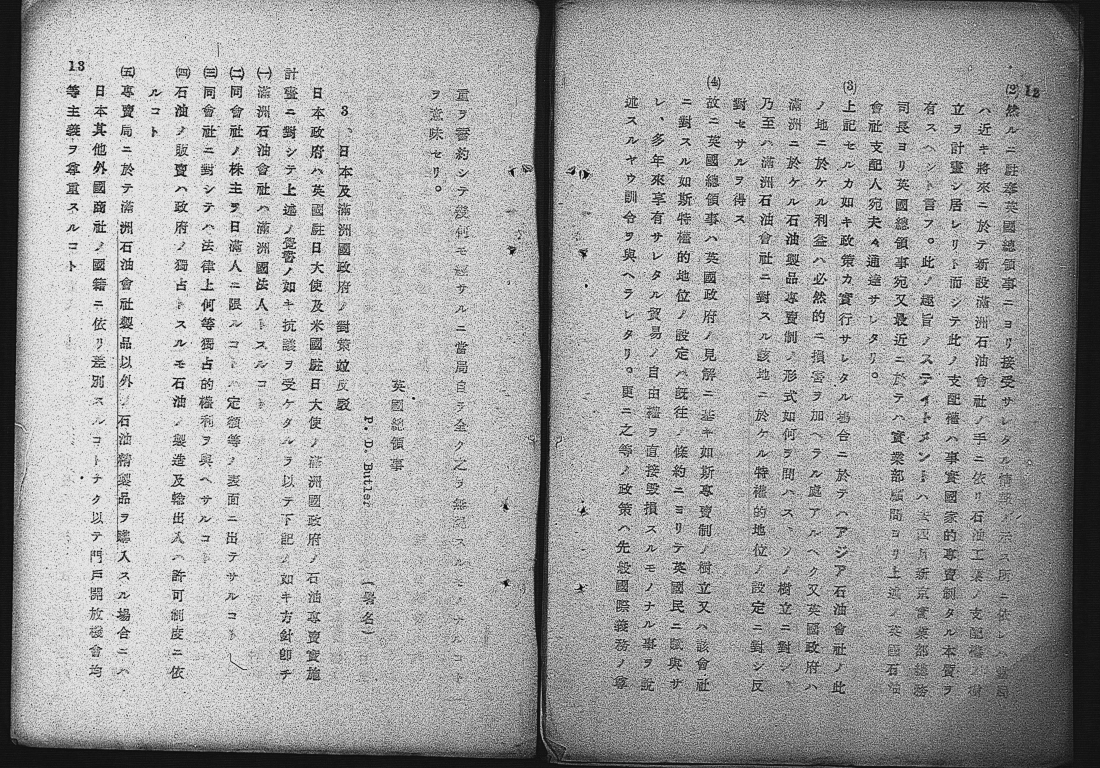 12
(2) 然ルニ駐奉英國總領事ニヨリ接受サレタル情報ノ示ス所ニ依レハ當局
ハ近キ將來ニ於テ新設滿洲石油會社ノ手ニ依リ石油工業ノ支配權ノ樹
立ヲ計畫シ居レリト而シテ此ノ支配權ハ事實國家的專賣制タル本質ヲ
有スヘシト言フ。此ノ趣旨ノステイトメントハ 新京實業部總務
司長ヨリ英國總領事宛又最近ニ於テハ實業部顧問ヨリ上述ノ英國石油
會社支配人宛夫々通達サレタリ。
(3) 上記セルカ如キ政策カ實行サレタル場合ニ於テハアジア石油會社ノ此
ノ地ニ於ケル利益ハ必然的ニ損害ヲ加ヘラル處アルヘク又英國政府ハ
滿洲ニ於ケル石油製品專賣制ノ形式如何ヲ問ハス、ソノ樹立ニ對シ
乃至ハ滿洲石油會社ニ對スル該地ニ於ケル特權的地位ノ設定ニ對シ反
對セサルヲ得ス
(4) 故ニ英國總領事ハ英國政府ノ見解ニ基キ如斯專賣制ノ樹立又ハ該會社
ニ對スル如斯特權的地位ノ設定ハ既往ノ條約ニヨリテ英國民ニ賦與サ
レ、多年來享有サレタル貿易ノ自由權ヲ直接毀損スルモノナル事ヲ說
述スルヤウ訓令ヲ與ヘラレタリ。更ニ之等ノ政策ハ先般國際義務ノ尊
重ヲ誓約シテ幾何モ經サルニ當局自ラ全ク之ヲ無視スルモノナルコト
ヲ意味セリ。
英國總領事
P. D. Butler (署名)
3、日本及滿洲國政府ノ對策竝反駁
日本政府ハ英國駐日大使及米國駐日大使ノ滿洲國政府ノ石油專賣實施
計畫ニ對シテ上述ノ覺書ノ如キ抗議ヲ受ケタルヲ以テ下記ノ如キ方針卽チ
㈠滿洲石油會社ハ滿洲國法人トスルコト
㈡同會社ノ株主ヲ日滿人ニ限ルコトハ定款等ノ表面ニ出テサルコト
㈢同會社ニ對シテハ法律上何等獨占的權利ヲ與ヘサルコト
㈣石油ノ販賣ハ政府ノ獨占トスルモ石油ノ製造及輸出入ハ許可制度ニ依
ルコト
㈤專賣局ニ於テ滿洲石油會社製品以外ノ石油精製品ヲ購入スル場合ニハ
日本其他外國商社ノ國籍ニ依リ差別スルコトナク以テ門戶開放機會均
等主義ヲ尊重スルコト
13